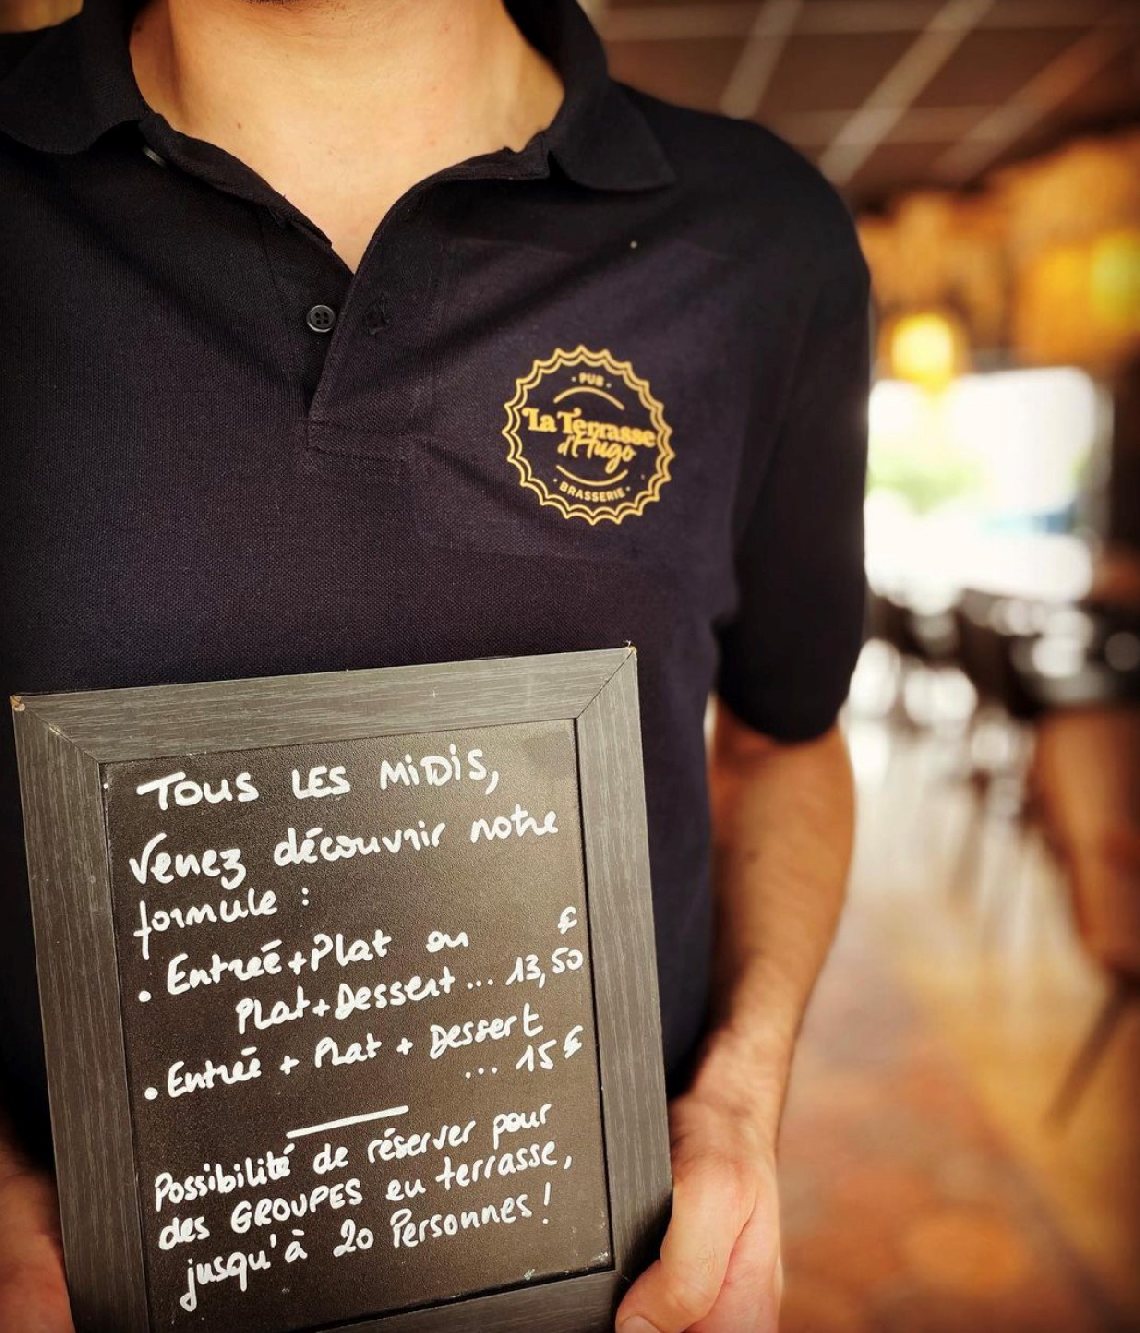 PUB
La Terrasse
d'Hugo
BRASSERIE
TOUS LES MiDiS,
Venez découvrir notre
formule :
• Entrée+Plat ou €
Plat+Dessert ... 13,50
• Entrée + Plat + Dessert
... 15 €
Possibilité de réserver pour
des GROUPES en terrasse,
jusqu'à 20 Personnes !